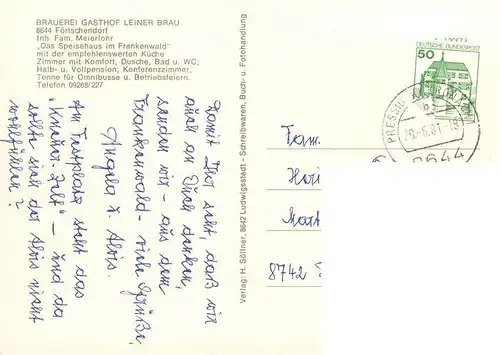 BRAUEREI GASTHOF LEINER BRÄU
8644 Förtschendorf
Inh. Fam. Meierlohr
„Das Speisehaus im Frankenwald"
mit der empfehlenswerten Küche
Zimmer mit Komfort, Dusche, Bad u. WC,
Halb- u. Vollpension, Konferenzzimmer,
Tenne für Omnibusse u. Betriebsfeiern.
Telefon 09268/227
Damit Ihr seht, daß wir
auch an Euch denken,
senden wir - aus dem
Frankenwald - viele Grüße,
Angela u. Alois.
Am Festplatz steht das
"Knöhr. Zelt" - und da
sollte sich der Alois nicht
wohlfühlen?
Verlag: H. Söllner, 8642 Ludwigsstadt - Schreibwaren, Buch- u. Fotohandlung
50
DEUTSCHE BUNDESPOST
8644
Fam.
Mart
8742